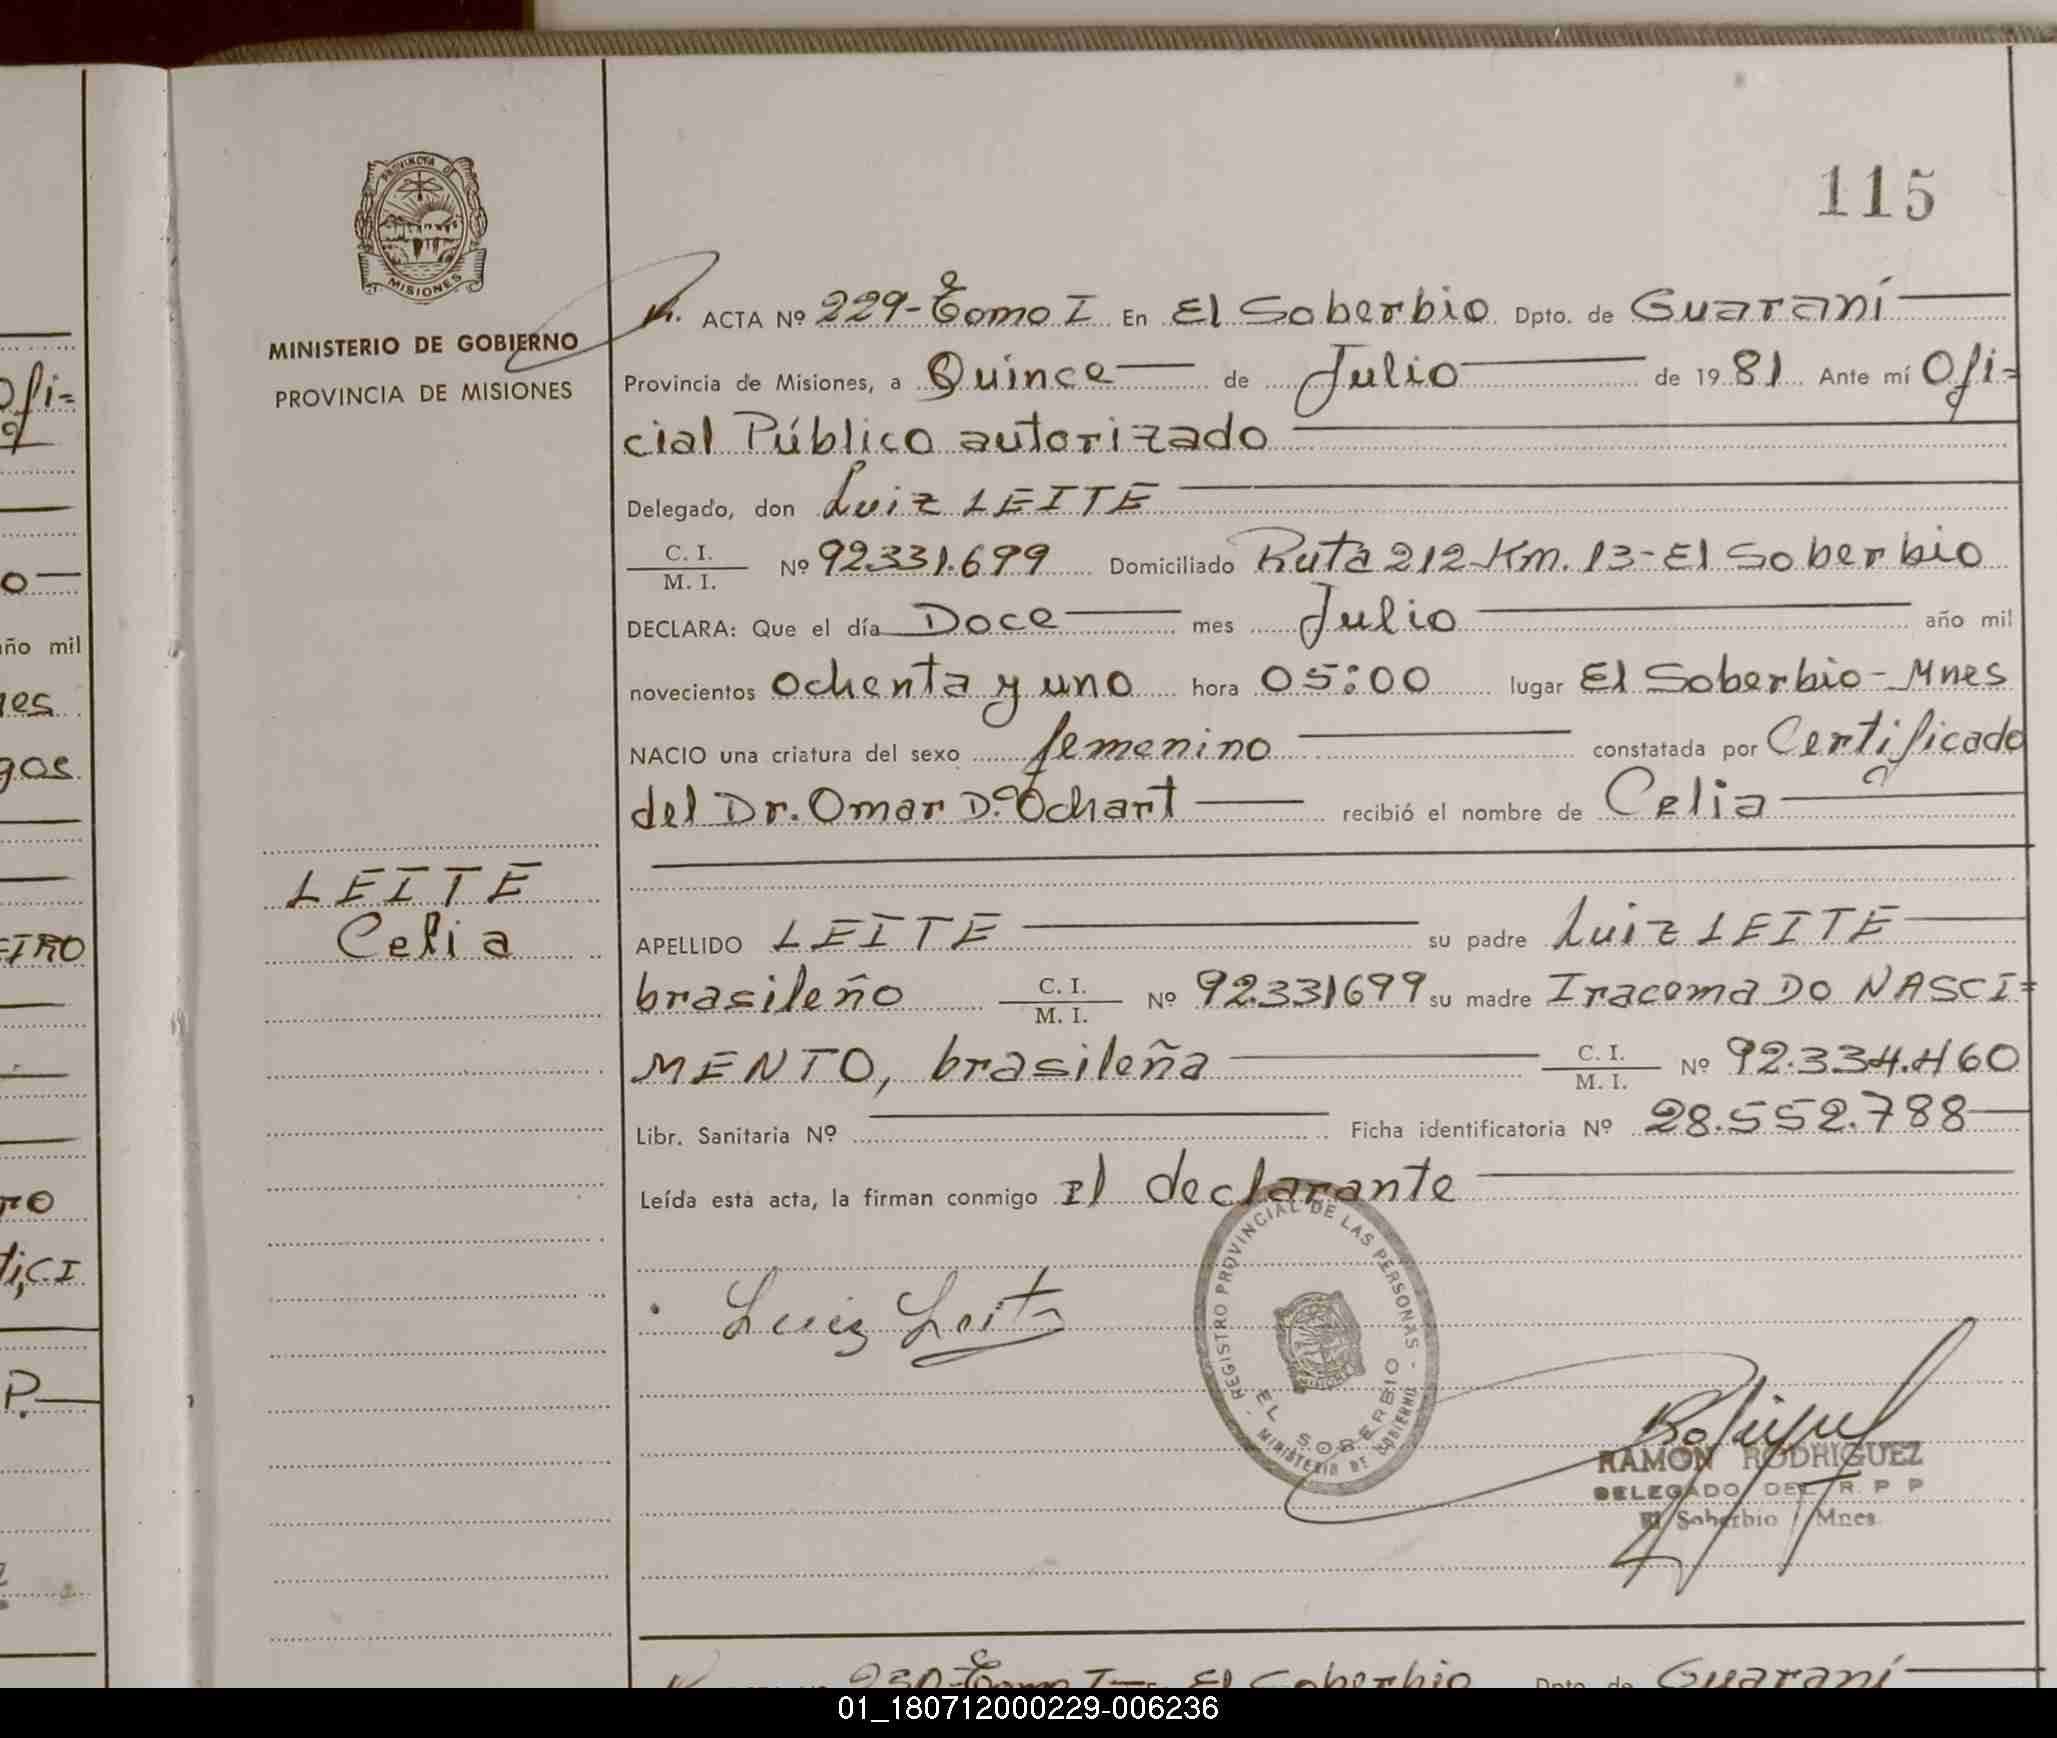 115
PROVINCIA DE
MISIONES
MINISTERIO DE GOBIERNO
PROVINCIA DE MISIONES
ACTA Nº 229-Tomo I En El Soberbio Dpto. de Guaraní
Provincia de Misiones, a Quince de Julio de 1981 Ante mí Ofi=
cial Público autorizado
Delegado, don Luiz LEITE
C. I.
M. I. Nº 92331.699 Domiciliado Ruta 212 Km. 13-El Soberbio
DECLARA: Que el día Doce mes Julio año mil
novecientos ochenta y uno hora 05:00 lugar El Soberbio-Mnes
NACIO una criatura del sexo femenino constatada por Certificado
del Dr. Omar D. Ochart recibió el nombre de Celia
LEITE
Celia
APELLIDO LEITE su padre Luiz LEITE
brasileño C. I.
M. I. Nº 92.331699 su madre Iracema DO NASCI=
MENTO, brasileña C. I.
M. I. Nº 92.334.460
Libr. Sanitaria Nº Ficha identificatoria Nº 28.552.788
Leída está acta, la firman conmigo El declarante
Luiz Leite
REGISTRO PROVINCIAL DE LAS PERSONAS
EL SOBERBIO
MINISTERIO DE GOBIERNO
RAMON RODRIGUEZ
DELEGADO DEL R P P
El Soberbio Mnes.
230-Tomo I El Soberbio Dpto. de Guaraní
Ofi=
año mil
nes
gos
EIRO
ti, CI
P.
01_180712000229-006236